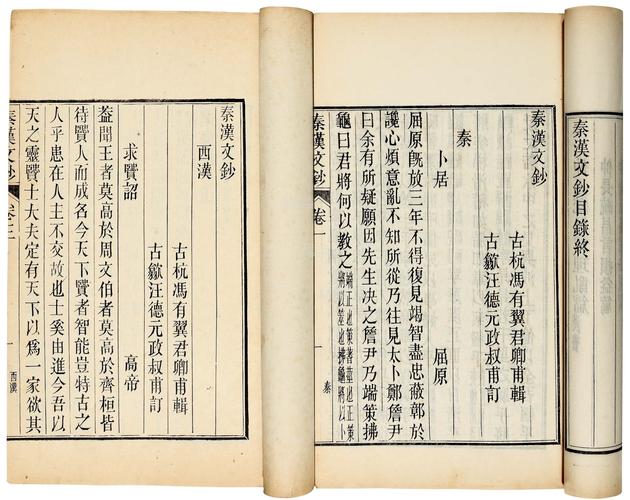 秦漢文鈔目錄終
秦漢文鈔
古杭馮有翼君卿甫輯
古歙汪德元政叔甫訂
秦
卜居 屈原
屈原旣放三年不得復見竭智盡忠蔽鄣於
讒心煩意亂不知所從乃往見太卜鄭詹尹
曰余有所疑願因先生决之詹尹乃端策拂
龜曰君將何以教之端正也策蓍莖也正策將以筮也拂龜將以卜
秦漢文鈔 卷一 一 秦
秦漢文鈔
西漢
古杭馮有翼君卿甫輯
古歙汪德元政叔甫訂
求賢詔 高帝
葢聞王者莫高於周文伯者莫高於齊桓皆
待賢人而成名今天下賢者智能豈特古之
人乎患在人主不交故也士奚由進今吾以
天之靈賢士大夫定有天下以爲一家欲其
秦漢文鈔 卷三 一 西漢